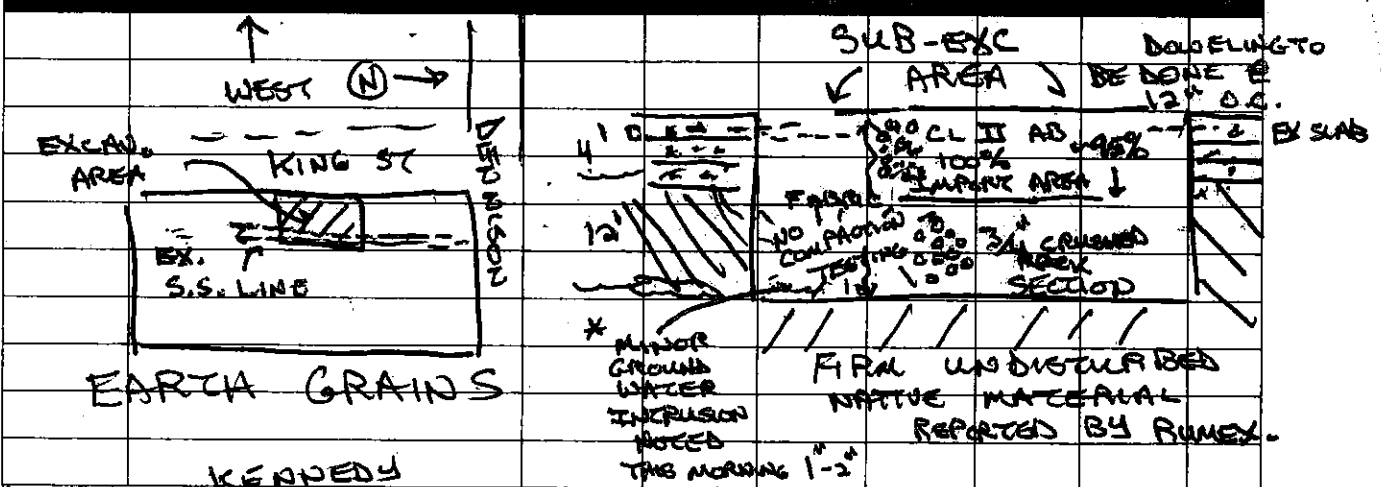 WEST N
EXCAV.
AREA
KING ST
DENNISON
EX.
S.S. LINE
EARTH GRAINS
KENNEDY
SUB-EXC
AREA
DOWELING TO
BE DONE @
12" O.C.
EX SLAB
4'
CL II AB
95%
100%
IMPORT AREA
12'
FABRIC
NO
COMPACTION
TESTING
3/4 CRUSHED
ROCK
SECTION
* MINOR
GROUND
WATER
INTRUSION
NOTED
THIS MORNING 1"-2"
FIRM UNDISTURBED
NATIVE MATERIAL
REPORTED BY RUMEX.